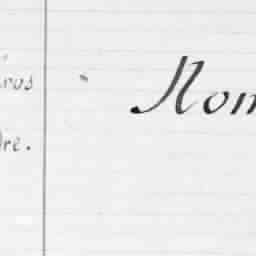 ros
dre.
Nom